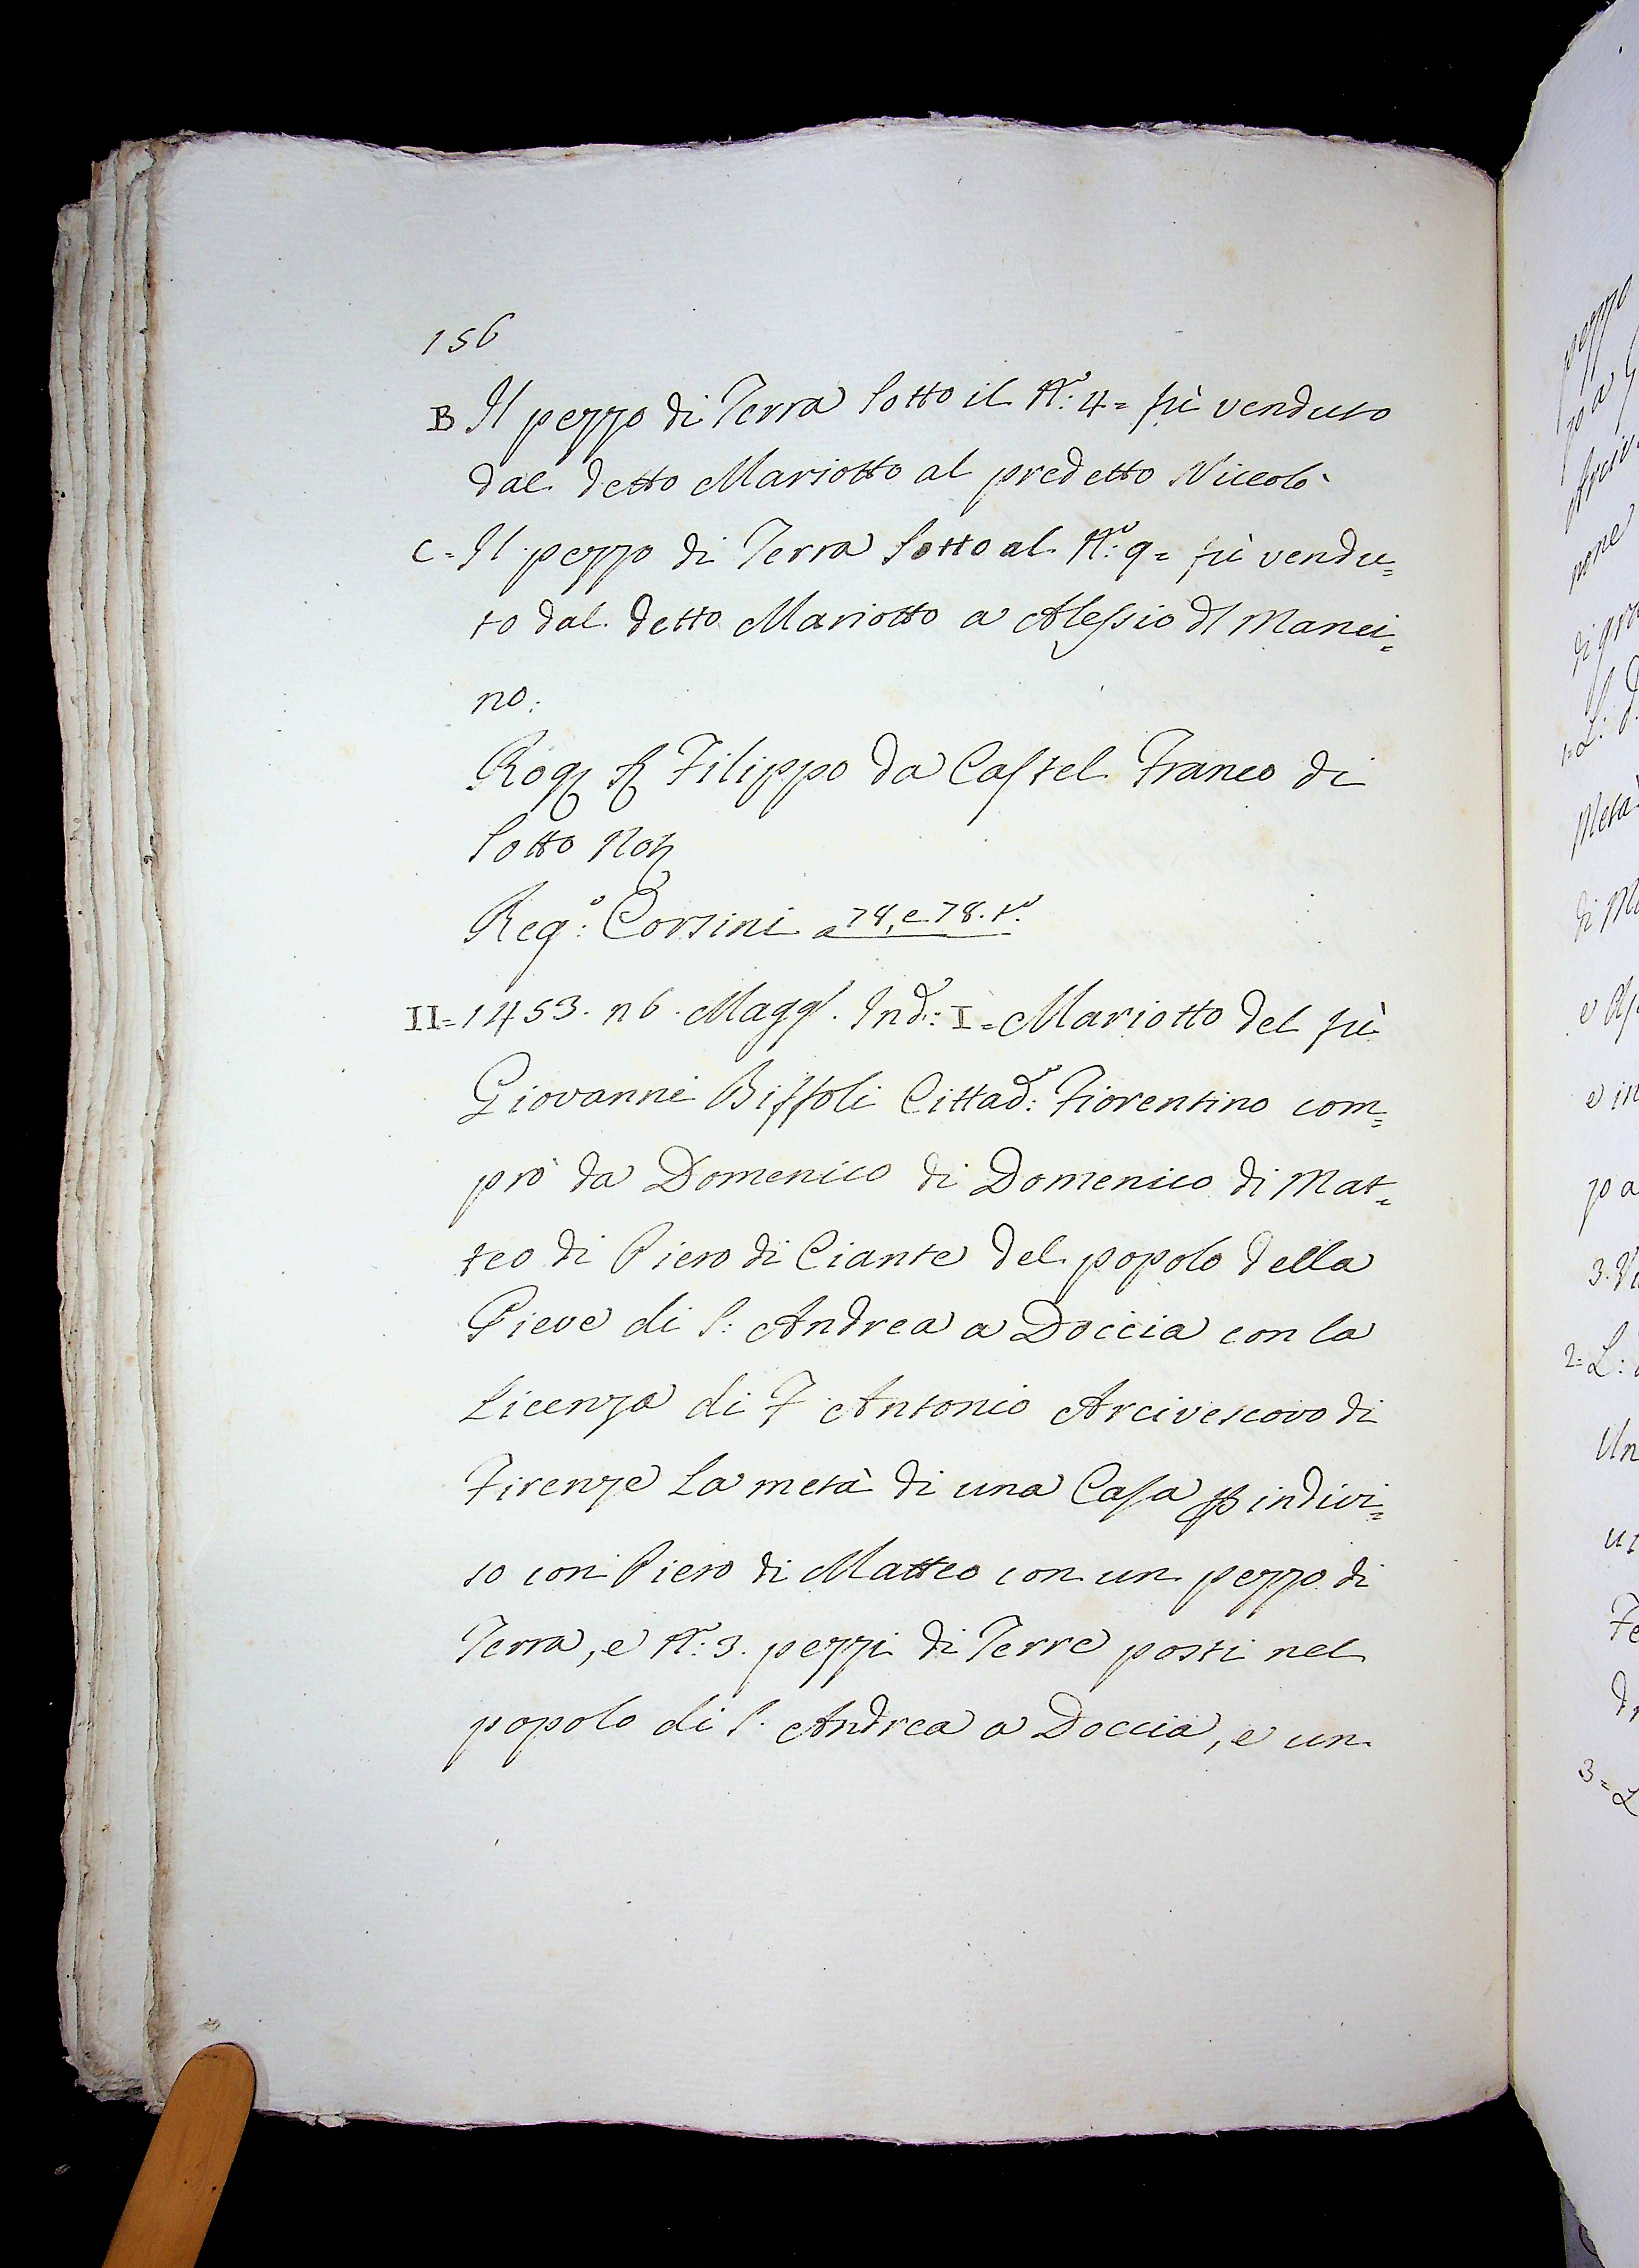 156
B Il pezzo di Terra Sotto il N.º: 4= fù venduto
dal detto Mariotto al predetto Niccolò
C= Il pezzo di Terra Sotto al N.º: 9= fù vendu=
to dal detto Mariotto a Alessio di Manci=
no:
Rog. Filippo da Castel Franco di
Sotto Not
Reg.º: Corsini a 78, e 78. t.º
II= 1453. 16. Magg. Ind.: I= Mariotto del fù
Giovanni Biffoli Cittad.: Fiorentino com=
prò da Domenico di Domenico di Mat=
teo di Piero di Ciante del popolo della
Pieve di S: Andrea a Doccia con la
Licenza di F. Antonio Arcivescovo di
Firenze La metà di una Casa p indivi=
so con Piero di Matteo con un pezzo di
Terra, e N.: 3. pezzi di Terre posti nel
popolo di S. Andrea a Doccia, e un
pezzo
Arciv
none
1= L:
Metà
di M
e in
zo a
3. V
2= L:
Un
3= L